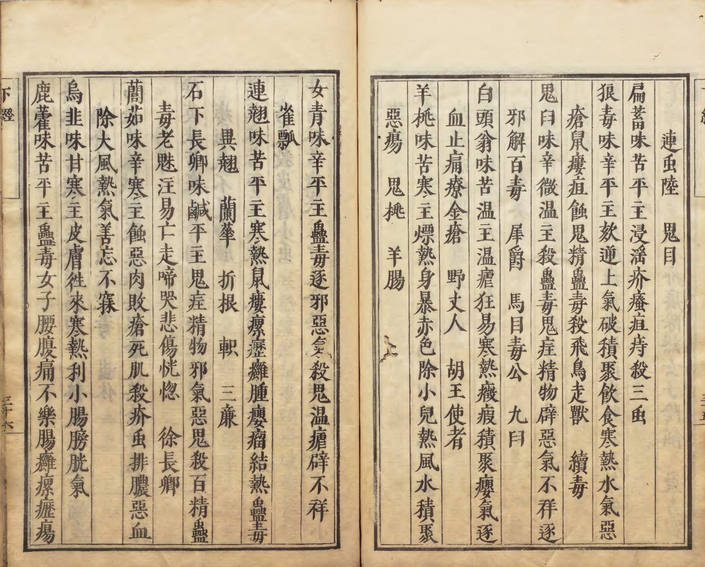 連䖝陸　鬼目
扁蓄味苦平主浸淫疥瘙疽痔殺三䖝
狼毒味辛平主欬逆上氣破積聚飲食寒熱水氣惡
瘡鼠瘻疽蝕鬼精蠱毒殺飛鳥走獸　續毒
鬼臼味辛微温主殺蠱毒鬼疰精物辟惡氣不祥逐
邪解百毒　犀爵　馬目毒公　九臼
白頭翁味苦温主温瘧狂易寒熱癥瘕積聚癭氣逐
血止痛療金瘡　野丈人　胡王使者
羊桃味苦寒主熛熱身暴赤色除小兒熱風水積聚
惡瘍　鬼桃　羊腸
女青味辛平主蠱毒逐邪惡氣殺鬼温瘧辟不祥
雀瓢
連翹味苦平主寒熱鼠瘻瘰癧癰腫癭瘤結熱蠱毒
異翹　蘭華　折根　軹　三廉
石下長卿味鹹平主鬼疰精物邪氣惡鬼殺百精蠱
毒老魅汪易亡走啼哭悲傷恍惚　徐長卿
䕡茹味辛寒主蝕惡肉敗瘡死肌殺疥䖝排膿惡血
除大風熱氣善忘不寐
烏韭味甘寒主皮膚徃來寒熱利小腸膀胱氣
鹿藿味苦平主蠱毒女子腰腹痛不樂腸癰瘰癧瘍
下經